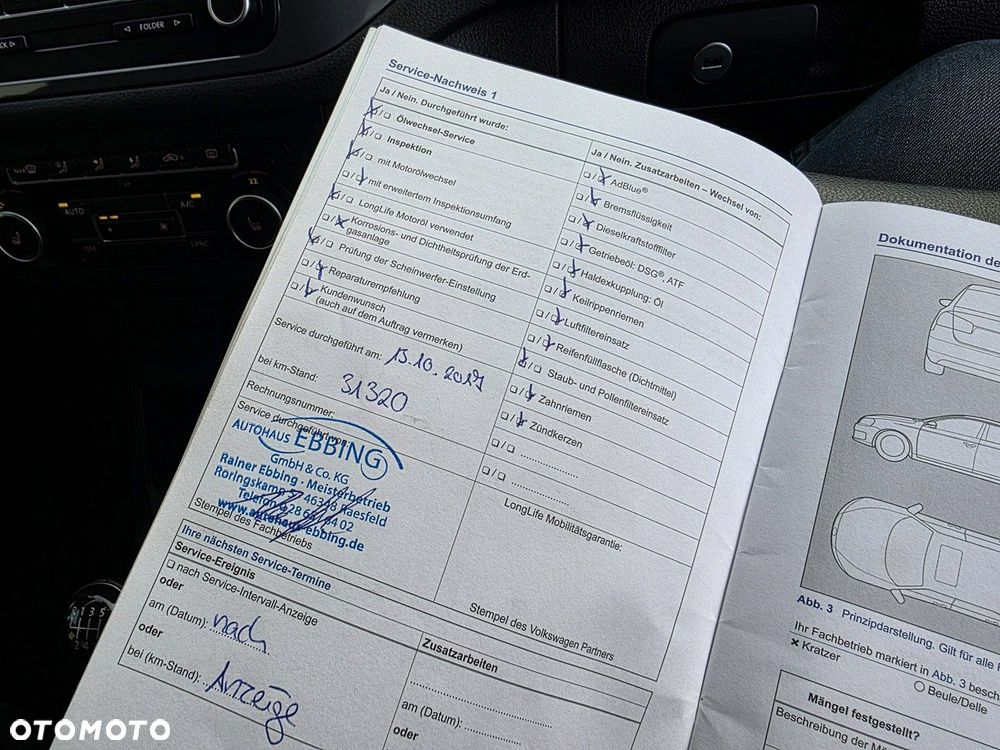 FOLDER
AUTO
A/C
22
Service-Nachweis 1
Ja / Nein. Durchgeführt wurde:
Ölwechsel-Service
Inspektion
mit Motorölwechsel
mit erweitertem Inspektionsumfang
LongLife Motoröl verwendet
Korrosions- und Dichtheitsprüfung der Erd-
gasanlage
Prüfung der Scheinwerfer-Einstellung
Reparaturempfehlung
Kundenwunsch
(auch auf dem Auftrag vermerken)
Service durchgeführt am: 13.10.2017
bei km-Stand: 31320
Rechnungsnummer:
Service durchgeführt von:
AUTOHAUS EBBING
GmbH & Co. KG
Rainer Ebbing · Meisterbetrieb
Roringskamp 5 · 46348 Raesfeld
Telefon
www.autohaus-ebbing.de
Stempel des Fachbetriebs
Ja / Nein. Zusatzarbeiten – Wechsel von:
AdBlue®
Bremsflüssigkeit
Dieselkraftstofffilter
Getriebeöl: DSG®, ATF
Haldexkupplung: Öl
Keilrippenriemen
Luftfiltereinsatz
Reifenfüllflasche (Dichtmittel)
Staub- und Pollenfiltereinsatz
Zahnriemen
Zündkerzen
LongLife Mobilitätsgarantie:
Stempel des Volkswagen Partners
Ihre nächsten Service-Termine
Service-Ereignis
nach Service-Intervall-Anzeige
oder
am (Datum): nach
oder
bei (km-Stand): Anzeige
Zusatzarbeiten
am (Datum):
oder
Dokumentation de
Abb. 3 Prinzipdarstellung. Gilt für alle
Ihr Fachbetrieb markiert in Abb. 3 besch
× Kratzer
Beule/Delle
Mängel festgestellt?
Beschreibung der Mä
1 3 5
OTOMOTO